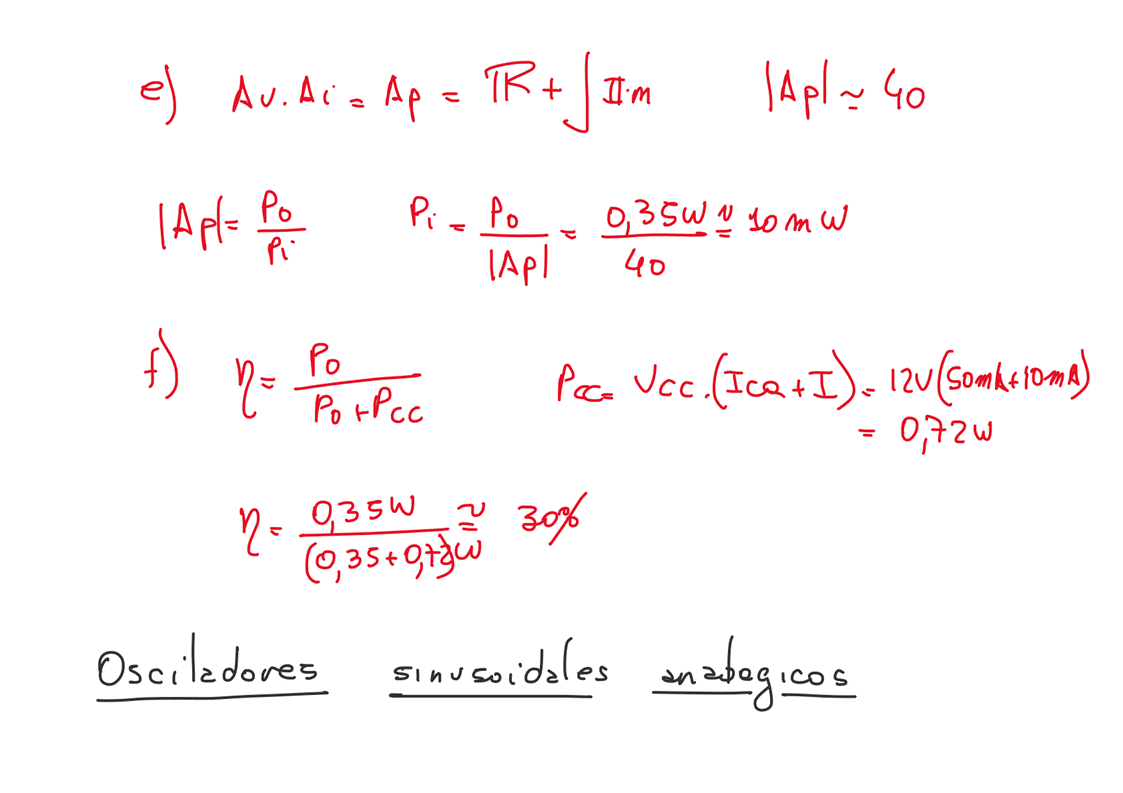 e) Av.Ai = Ap = ℝ + j Im |Ap| ≃ 40
|Ap| = Po/Pi Pi = Po/|Ap| = 0,35W/40 ≅ 10mW
f) η = Po/(Po+Pcc) Pcc = Vcc.(IcQ+I) = 12V(50mA+10mA)
= 0,72W
η = 0,35W/(0,35+0,72)W ≅ 30%
Osciladores sinusoidales analogicos